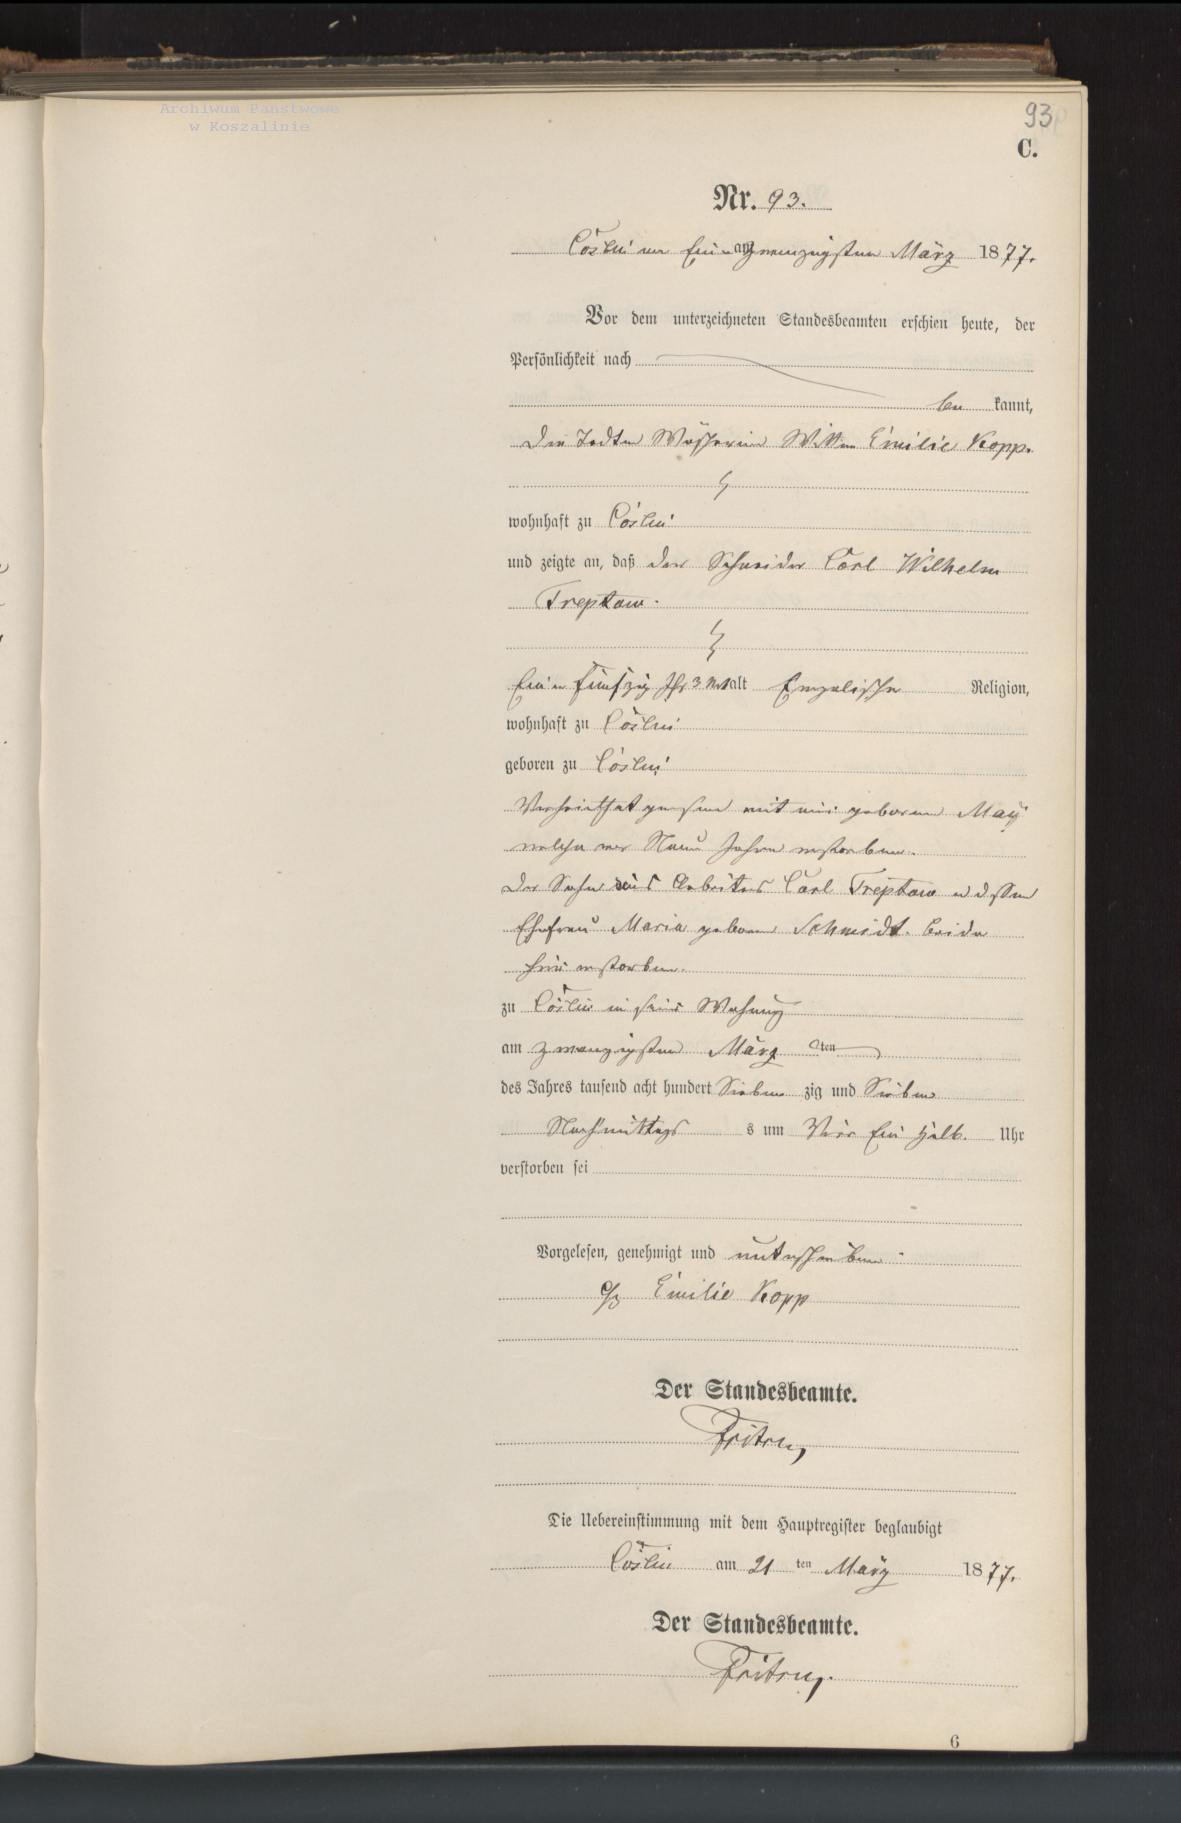 Archiwum Państwowe
w Koszalinie
93
C.
Nr. 93.
Cöslin am Ein zwanzigsten März 1877.
Vor dem unterzeichneten Standesbeamten erschien heute, der
Persönlichkeit nach
be kannt,
die Todten Wäscherin Wittwe Emilie Kopp.
wohnhaft zu Cöslin
und zeigte an, daß der Schneider Carl Wilhelm
Treptow.
Ein fünfzig Jhr 3 Mt alt Evangelischer Religion,
wohnhaft zu Cöslin
geboren zu Cöslin
Verheirathet gewesen mit geborene May
welche vor Jahren verstorben.
Der Sohn des Arbeiters Carl Treptow u dessen
Ehefrau Maria geborene Schmidt. beide
hier verstorben.
zu Cöslin in seiner Wohnung
am zwanzigsten März ten
des Jahres tausend acht hundert Sieben zig und Sieben
Nachmittags s um Vier Ein halb. Uhr
verstorben sei
Vorgelesen, genehmigt und unterschrieben.
Emilie Kopp
Der Standesbeamte.
Die Uebereinstimmung mit dem Hauptregister beglaubigt
Cöslin am 21 ten März 1877.
Der Standesbeamte.
6